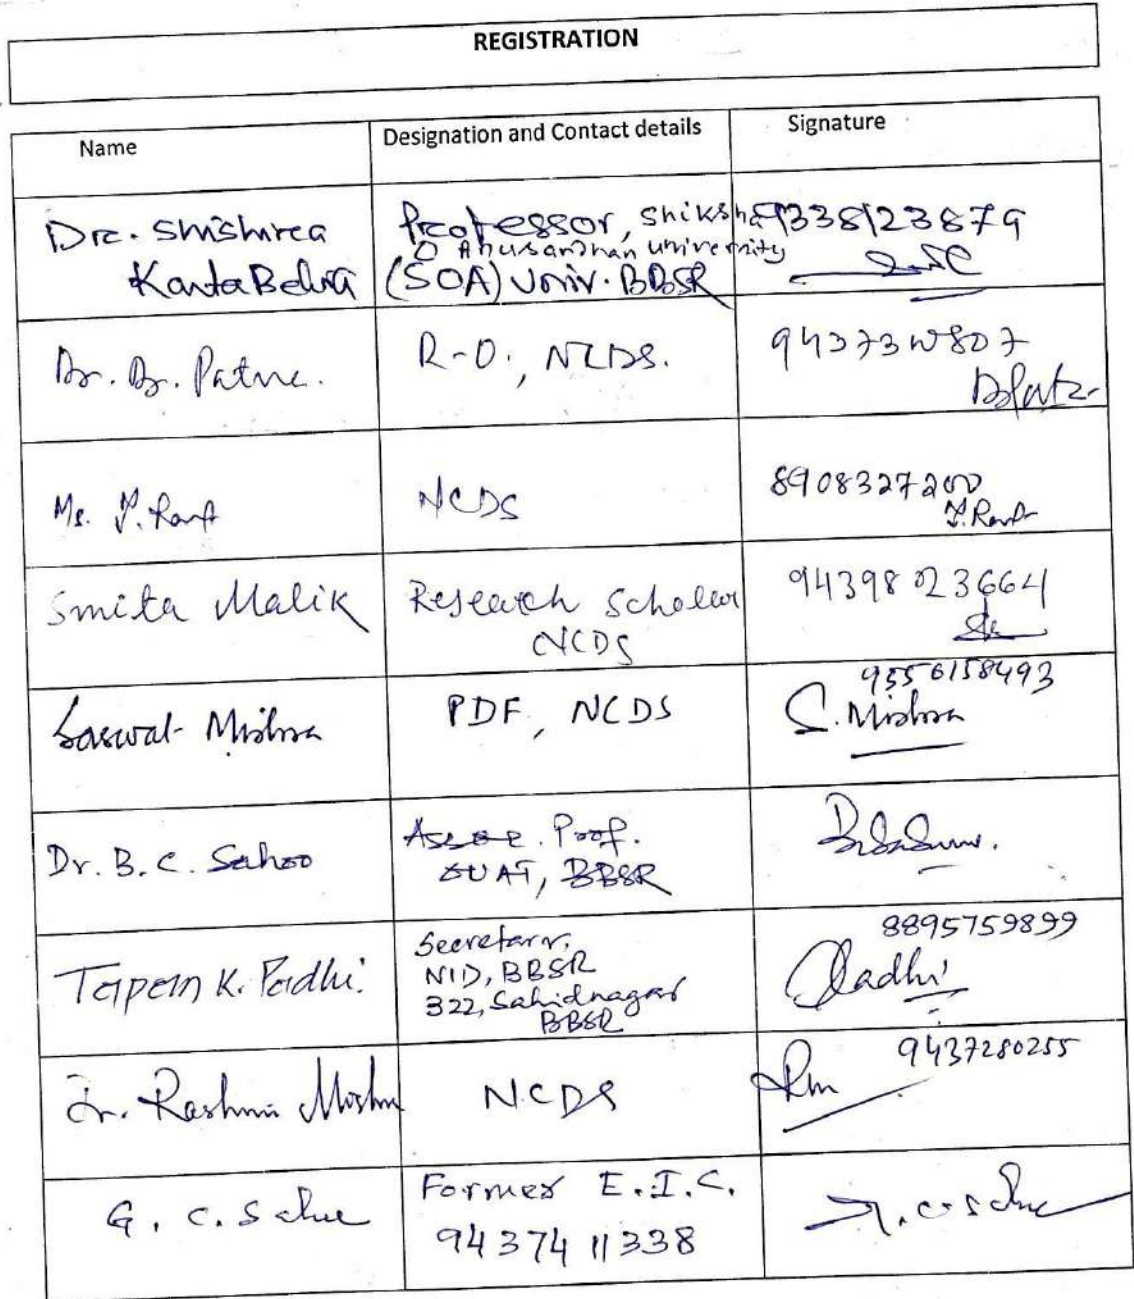 REGISTRATION
Name
Designation and Contact details
Signature
Dr. Shishira
Kanta Behra
Professor, Shiksha
O Anusandhan university
(SOA) Univ. BBSR
9338123879
R-O., NCDS.
Ms.
NCDS
8908327200
Smita Malik
Research Scholar
NCDS
9439823664
Saswat Mishra
PDF, NCDS
9556158493
S. Mishra
Dr. B. C. Sahoo
Assoc. Prof.
OUAT, BBSR
Tapan K. Padhi.
Secretary,
NID, BBSR
322, Sahidnagar
BBSR
8895759899
Padhi
Dr. Rashmi Mishra
NCDS
9437280255
G. C. Sahu
Former E.I.C.
9437411338
G. C. Sahu